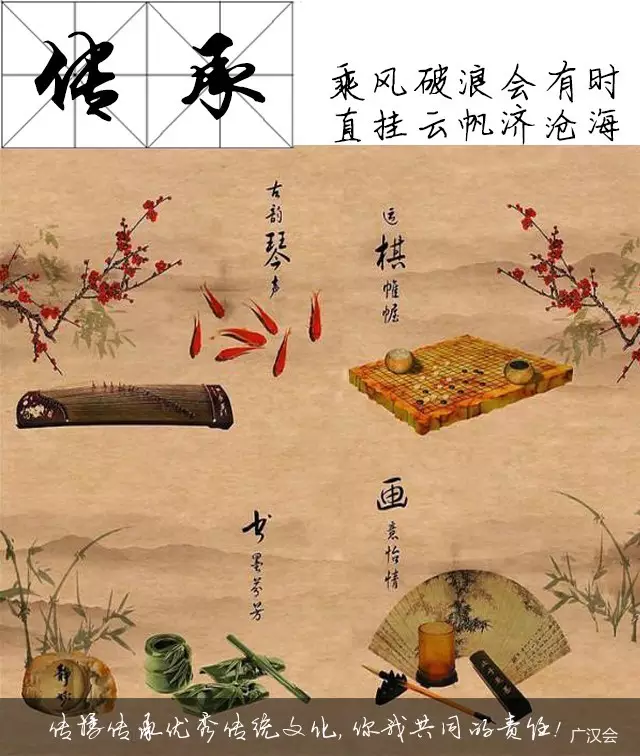 传承
乘风破浪会有时
直挂云帆济沧海
古韵琴声
运棋帷幄
书墨芬芳
画意怡情
传播传承优秀传统文化,你我共同的责任!
广汉会